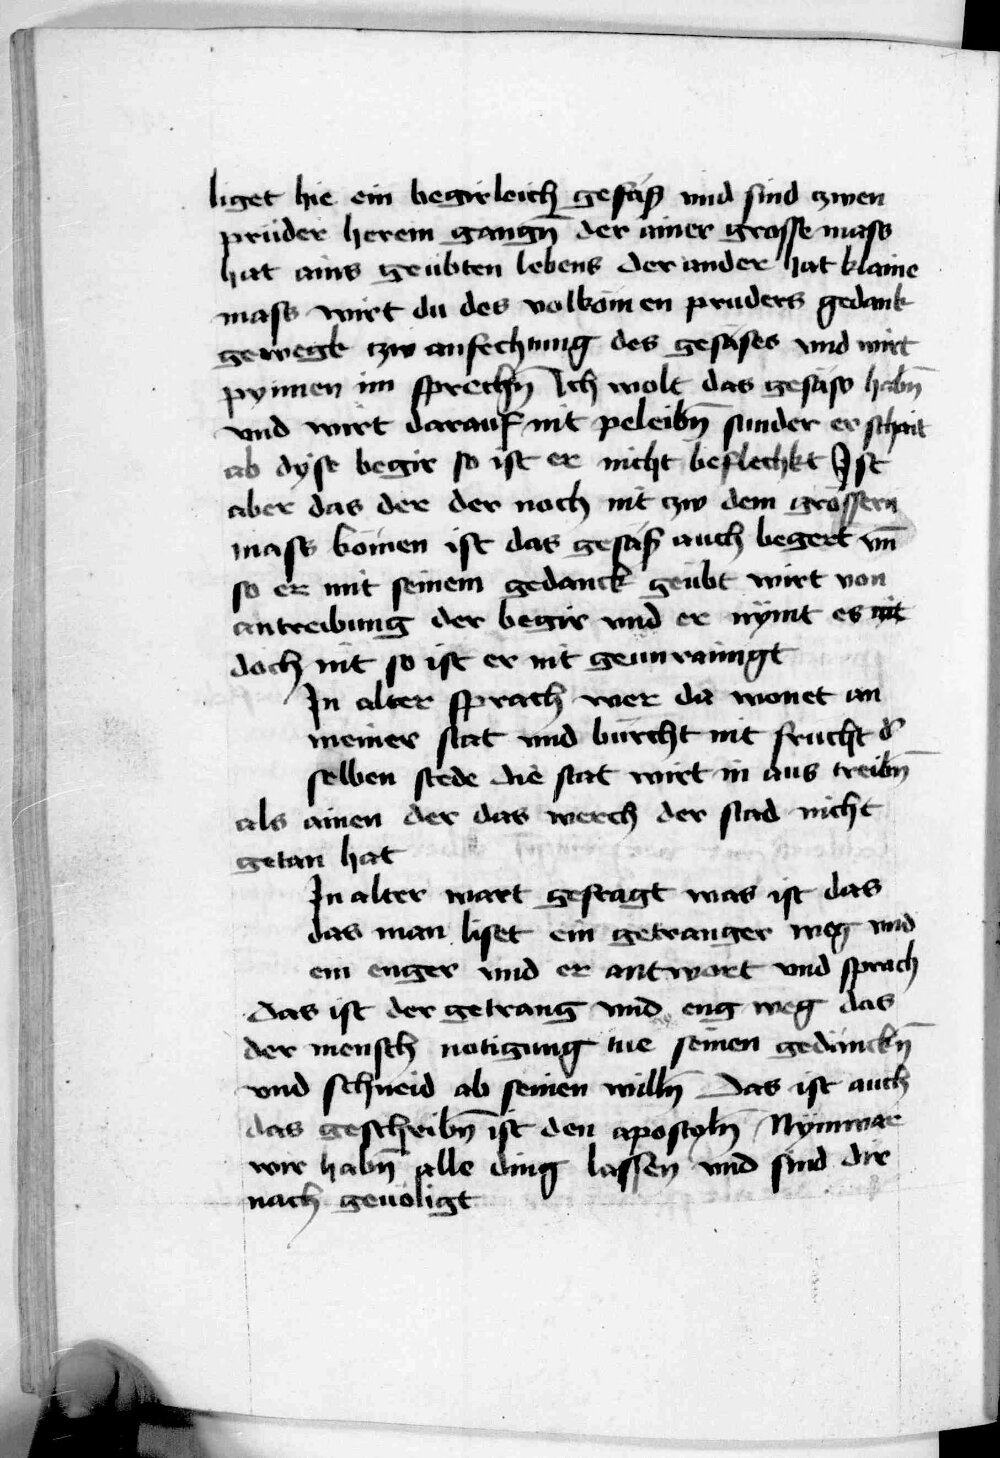 liget hie ein begirleich gesäß vnd sind zwen
prüder herein gangn̄ der ainer grosse mass
hat ains geübten lebens der ander hat klaine
mass wirt du des volkömen pruders gedank
gewegt zw anfechtung des gesäses vnd wirt
pynnen im sprechn̄ Ich wolt das gesäss habn̄
vnd wirt darauf nit peleibn̄ sunder er schait
ab dyse begir so ist er nicht beflechkt Ist
aber das der der noch nit zw dem grössern
mass kömen ist das gesäß auch begert vn̄
so er mit seinem gedanck geübt wirt von
antreibung der begir vnd er nymt es nit
doch nit so ist er nit geunrainigt
In alter sprach wer da wonet an
meiner stat vnd bürcht nit frucht d'
selben stede die stat wirt in aus treibn̄
als ainen der das werch der stad nicht
getan hat
In alter wart gefragt was ist das
das man liset ein getranger weg vnd
ein enger vnd er antwort vnd sprach
das ist der getrang vnd eng weg das
der mensch notigung tue seinen gedänckn̄
vnd schneid ab seinen willn̄ Das ist auch
das geschribn̄ ist den apostoln̄ Nymwar
wir habn̄ alle ding lassen vnd sind dir
nach geuoligt